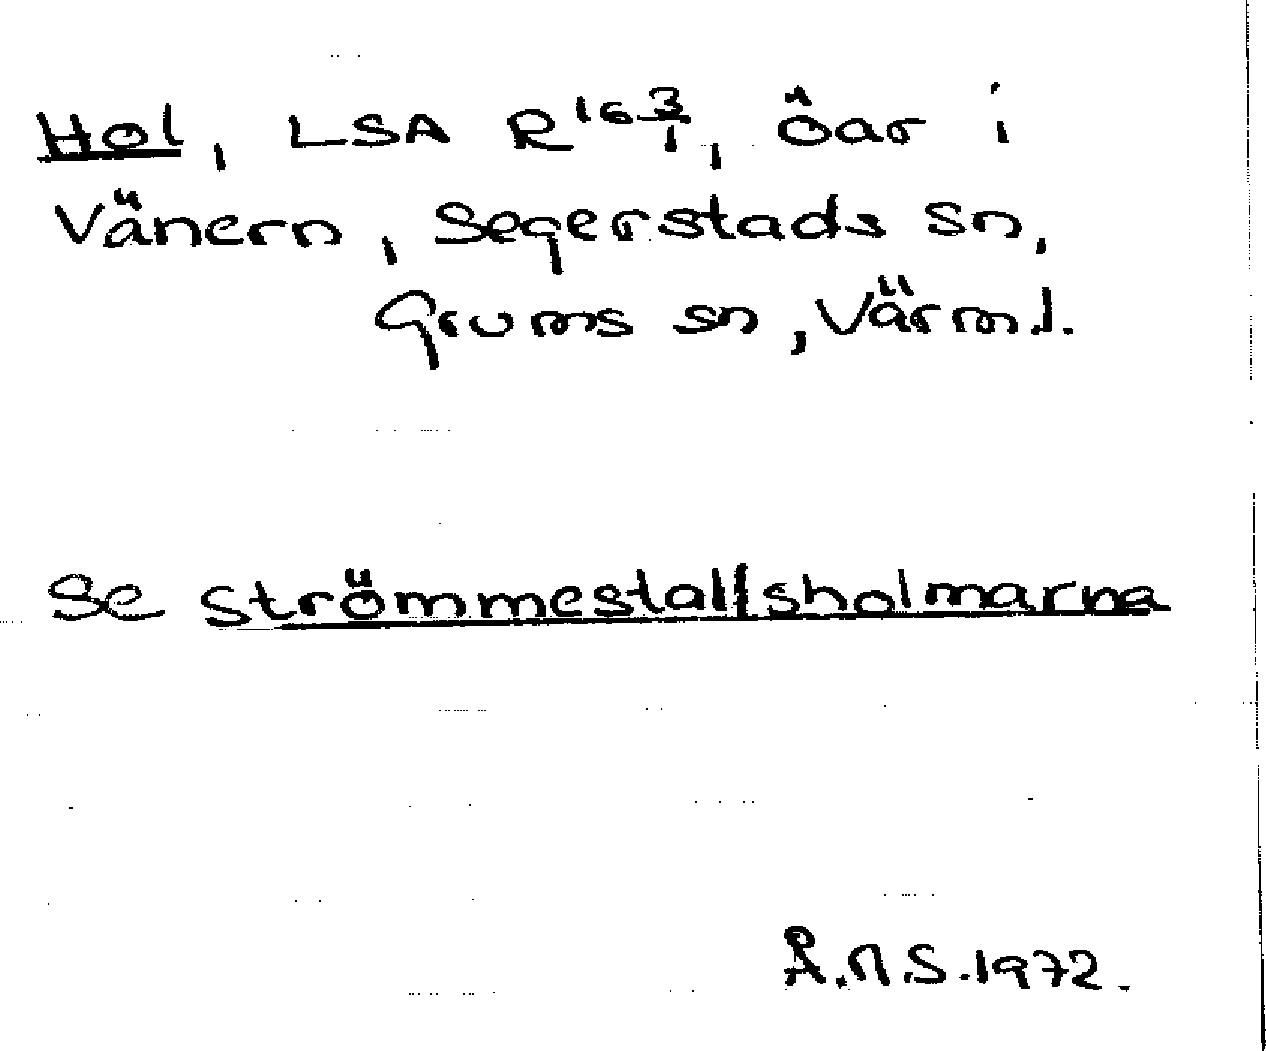 Hol, LSA R16 3/1, öar i
Vänern, Segerstads sn,
Grums sn, Värml.
Se Strömmestallsholmarna
Å.M.S. 1972.